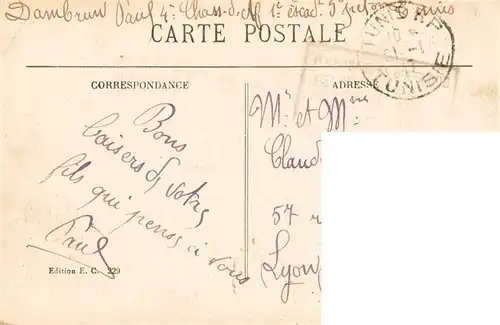 Dambrun Paul 4e Chass. d'Af 1er escad. 5e peloton Tunis
CARTE POSTALE
TUNIS R P
TUNISIE
CORRESPONDANCE
ADRESSE
Bons
baisers de votre
fils qui pense à vous
Paul
Mr et Mme
Claud
57 r
Lyon
Edition E. C. 229